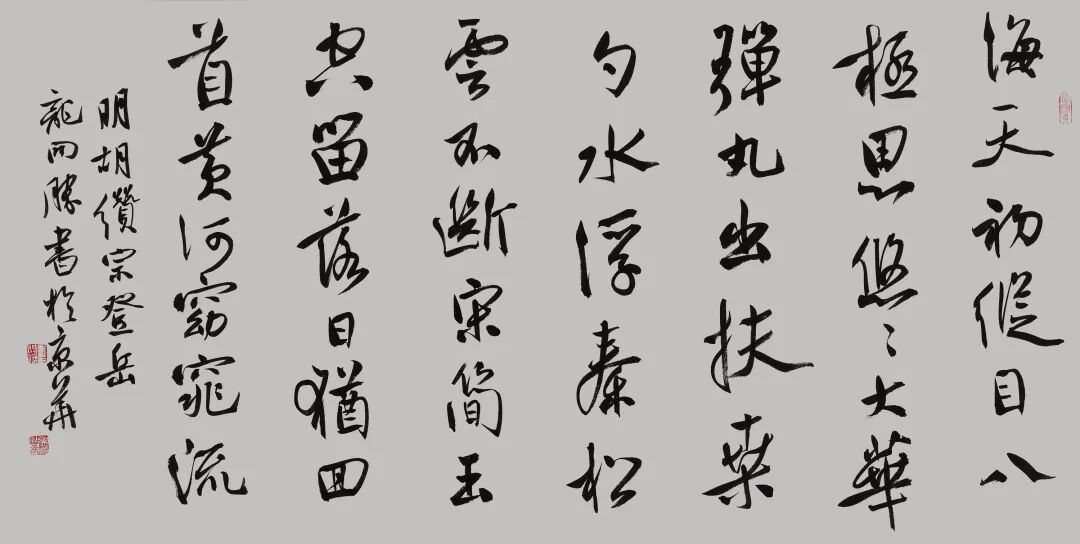 海天初縱目八
極思悠〻大華
彈丸出扶桒
勺水浮秦松
雲不斷宋簡玉
空留落日猶回
首黃河窈窕流
明胡纘宗登岳
龍開勝書於京華